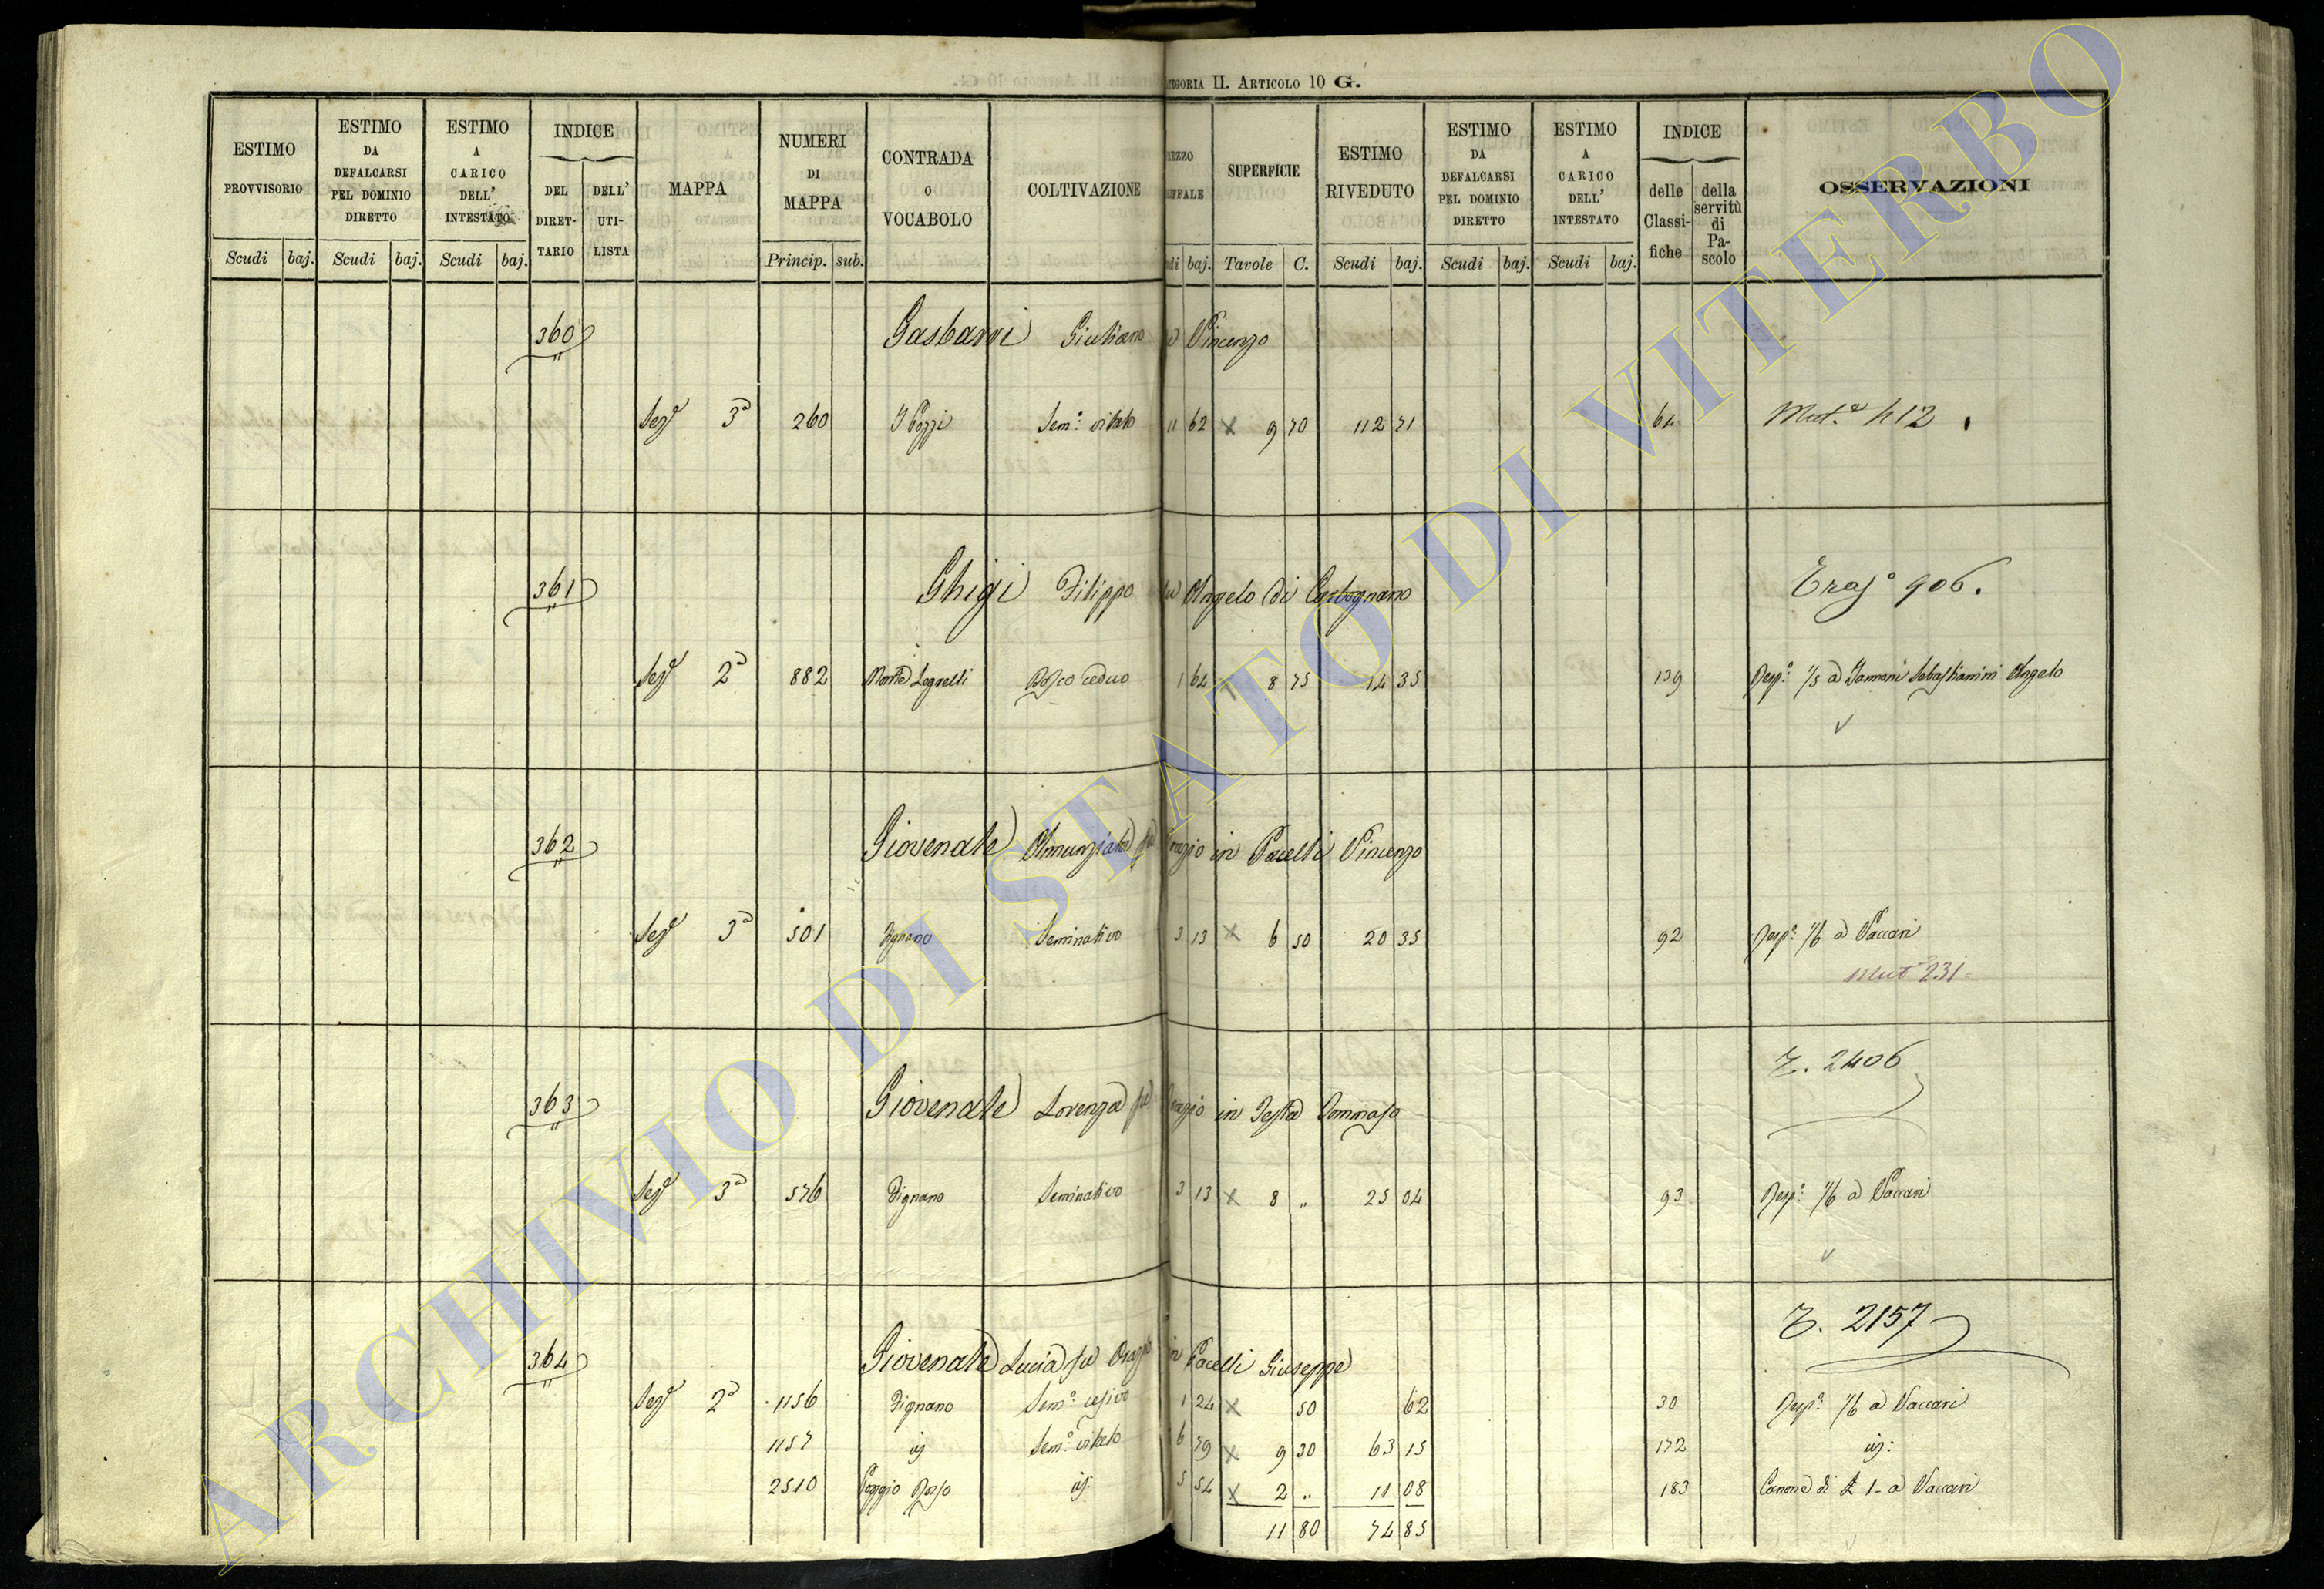 CATEGORIA II. ARTICOLO 10 G.
ESTIMO PROVVISORIO Scudi baj.
ESTIMO DA DEFALCARSI PEL DOMINIO DIRETTO Scudi baj.
ESTIMO A CARICO DELL' INTESTATO Scudi baj.
INDICE DEL DIRETTARIO DELL' UTILISTA
MAPPA
NUMERI DI MAPPA Princip. sub.
CONTRADA O VOCABOLO
COLTIVAZIONE
REZZO UFFALE di baj.
SUPERFICIE Tavole C.
ESTIMO RIVEDUTO Scudi baj.
ESTIMO DA DEFALCARSI PEL DOMINIO DIRETTO Scudi baj.
ESTIMO A CARICO DELL' INTESTATO Scudi baj.
INDICE delle Classifiche della servitù di Pascolo
OSSERVAZIONI
360 Gasbarri Giuliano Vincenzo
Seze 3a 260 I Pozzi Sem.o vitato 11 62 x 9 70 112 71 64 Mut.e 412
361 Ghigi Filippo fu Angelo di Carbognano Tras.o 906.
Seze 2a 882 Monte Bosco ceduo 1 64 8 75 14 35 139 Resp.o 1/5 a Sebastianini Angelo
362 Giovenale Annunziata fu Orazio in Pacelli Vincenzo
Seze 3a 501 Fignano Seminativo 3 13 x 6 50 20 35 92 Resp.o 1/6 a Vaccari
Mut.e 231
T. 2406
363 Giovenale Lorenza fu Orazio in Testa Tommaso
Seze 3a 576 Fignano Seminativo 3 13 x 8 " 25 04 93 Resp.o 1/6 a Vaccari
T. 2157
364 Giovenale Lucia fu Orazio in Pacelli Giuseppe
Seze 2a 1156 Fignano Sem.o 1 24 x 50 62 30 Resp.o 1/6 a Vaccari
1157 Sem.o vitato 6 79 x 9 30 63 15 172
2510 Poggio Rosso 5 54 x 2 " 11 08 183 Canone di £ 1- a Vaccari
11 80 74 85
ARCHIVIO DI STATO DI VITERBO